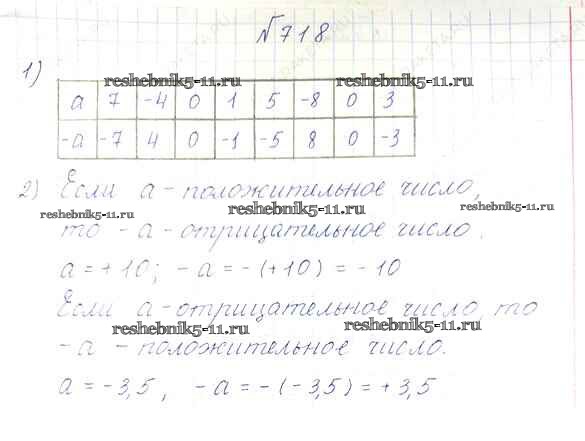 №718
1)
reshebnik5-11.ru reshebnik5-11.ru
a 7 -4 0 1 5 -8 0 3
-a -7 4 0 -1 -5 8 0 -3
2) Если a - положительное число,
reshebnik5-11.ru reshebnik5-11.ru reshebnik5-11.ru
то -a - отрицательное число.
a = +10; -a = -(+10) = -10
Если a - отрицательное число, то
reshebnik5-11.ru reshebnik5-11.ru
-a - положительное число.
a = -3,5, -a = -(-3,5) = +3,5